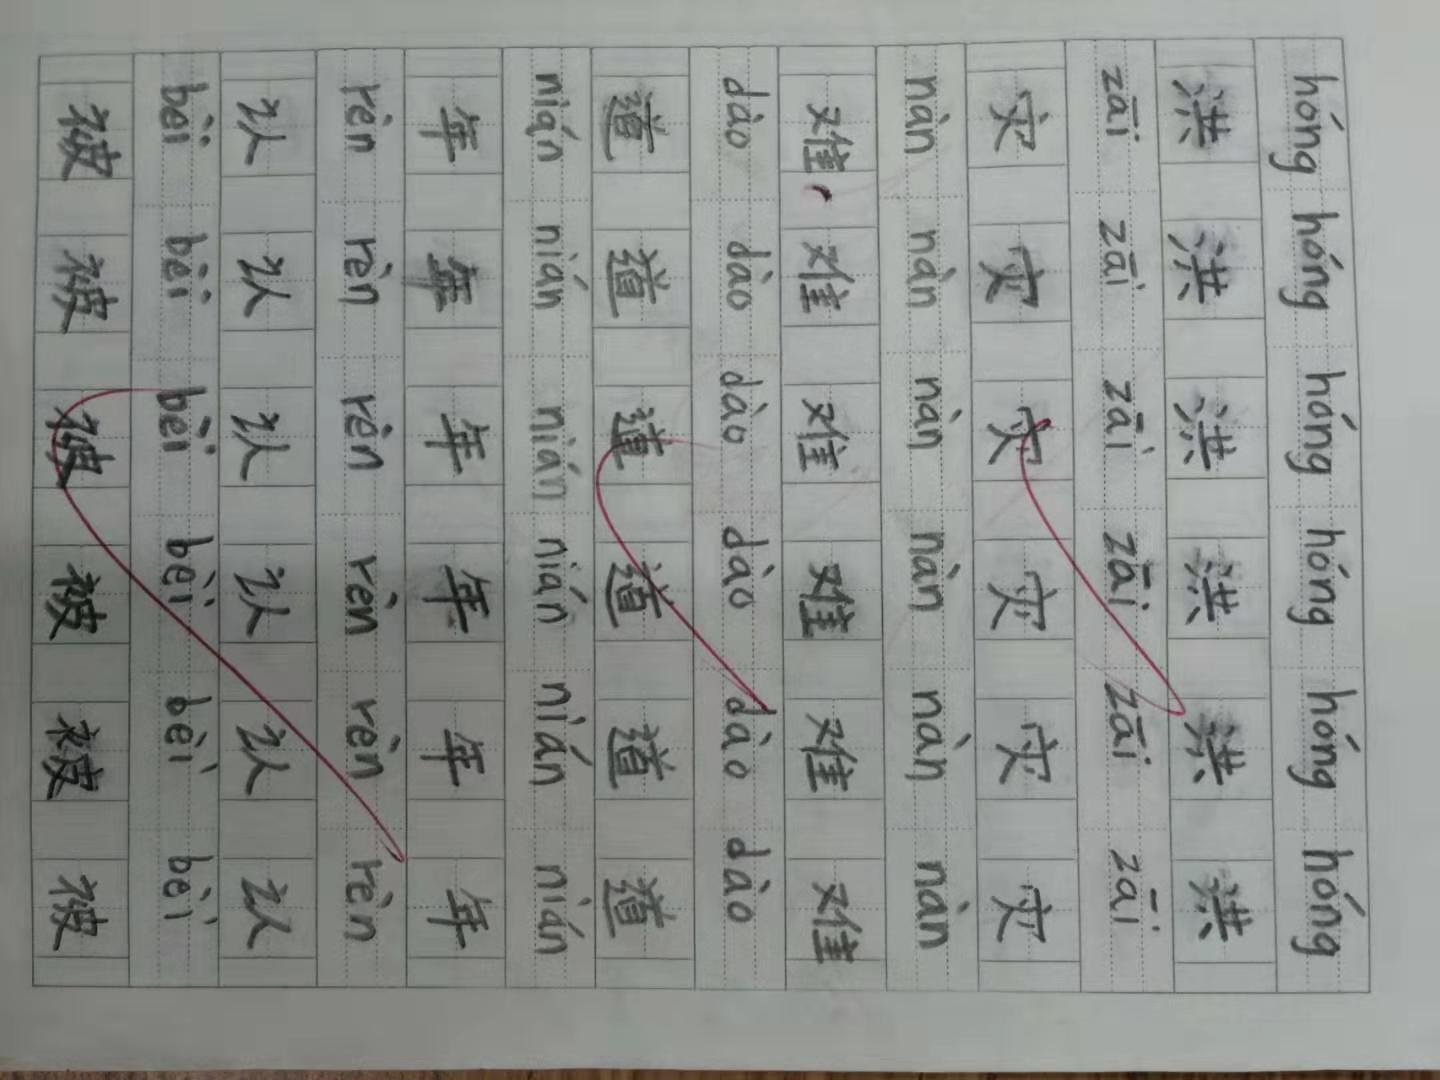 hóng hóng hóng hóng hóng hóng
洪 洪 洪 洪 洪 洪
zāi zāi zāi zāi zāi zāi
灾 灾 灾 灾 灾 灾
nàn nàn nàn nàn nàn nàn
难 难 难 难 难 难
dào dào dào dào dào dào
道 道 道 道 道 道
nián nián nián nián nián nián
年 年 年 年 年 年
rèn rèn rèn rèn rèn rèn
认 认 认 认 认 认
bèi bèi bèi bèi bèi bèi
被 被 被 被 被 被